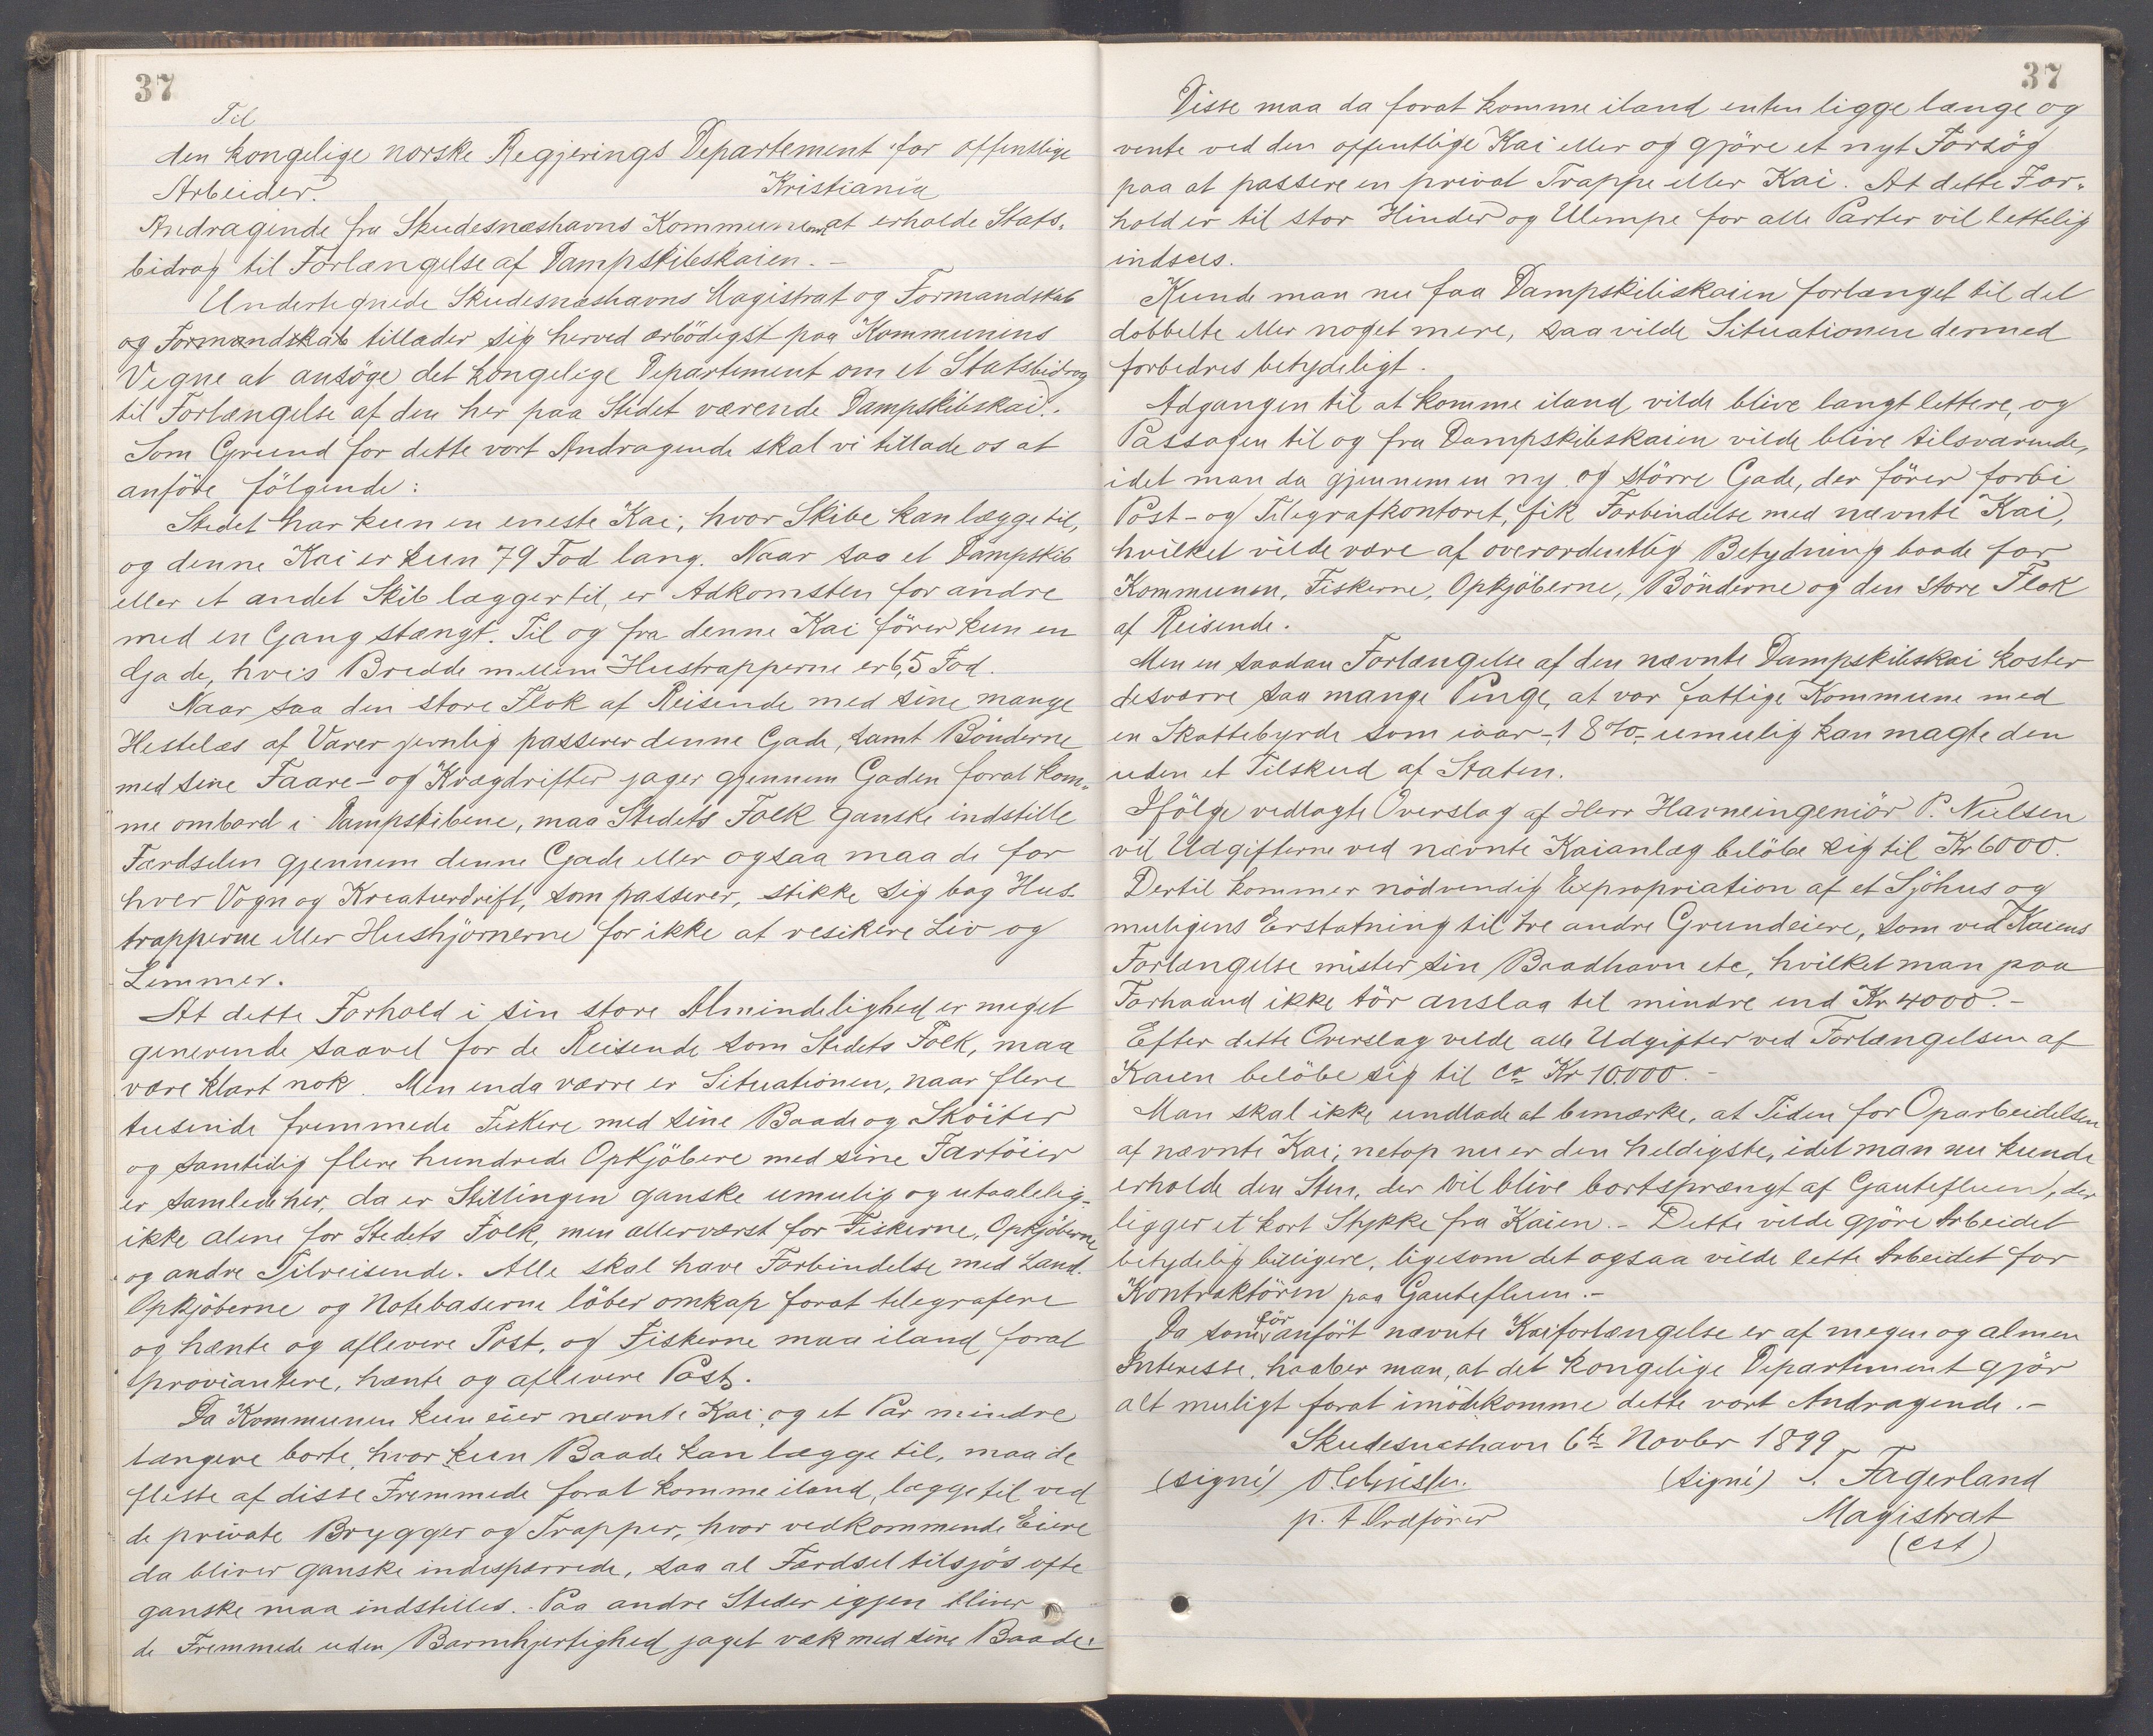 37
Til
den kongelige norske Regjerings Departement for offentlige
Arbeider. Kristiania
Andragende fra Skudesnæshavns Kommune om at erholde Stats-
bidrag til Forlængelse af Dampskibskaien. -
Undertegnede Skudesnæshavns Magistrat og Formandskab
og Formandskab tillader sig herved ærbödigst paa Kommunens
Vegne at ansöge det kongelige Departement om et Statsbidrag
til Forlængelse af den her paa Stedet værende Dampskibskai.
Som Grund for dette vort Andragende skal vi tillade os at
anföre fölgende:
Stedet har kun en eneste Kai, hvor Skibe kan lægge til,
og denne Kai er kun 79 Fod lang. Naar saa et Dampskib
eller et andet Skib lægger til, er Adkomsten for andre
med en Gang stængt. Til og fra denne Kai förer kun en
Gade, hvis Bredde mellem Hustrapperne er 6,5 Fod.
Naar saa den store Flok af Reisende med sine mange
Hestelæs af Varer jevnlig passerer denne Gade, samt Bönderne
med sine Faare- og Kvægdrifter jager gjennem Gaden forat kom-
me ombord i Dampskibene, maa Stedets Folk ganske indstille
Færdselen gjennem denne Gade eller ogsaa maa de for
hver Vogn og Kreaturdrift, som passerer, stikke sig bag Hus-
trapperne eller Hushjörnerne for ikke at resikere Liv og
Lemmer.
At dette Forhold i sin store Almindelighed er meget
generende saavel for de Reisende som Stedets Folk, maa
være klart nok. Men enda værre er Situationen, naar flere
tusende fremmede Fiskere med sine Baade og Sköiter
og samtidig flere hundrede Opkjöbere med sine Fartöier
er samlede her, da er Stillingen ganske umulig og utaalelig-
ikke alene for Stedets Folk, men allerværst for Fiskerne, Opkjöberne
og andre Tilreisende. Alle skal have Forbindelse med Land.
Opkjöberne og Notebaserne löber omkap forat telegrafere
og hænte og aflevere Post, og Fiskerne maa iland forat
proviantere, hænte og aflevere Post.
Da Kommunen kun eier nævnte Kai og et Par mindre
længere borte, hvor kun Baade kan lægge til, maa de
fleste af disse Fremmede forat komme iland, lægge til ved
de private Brygger og Trapper, hvor vedkommende Eiere
da bliver ganske indesperrede, saa al Færdsel tilsjös ofte
ganske maa indstilles. Paa andre Steder igjen bliver
de Fremmede uden Barmhjertighed jaget væk med sine Baade.
37
Disse maa da forat komme iland enten ligge længe og
vente ved den offentlige Kai eller og gjöre et nyt Forsög
paa at passere en privat Trappe eller Kai. At dette For-
hold er til stor Hinder og Ulempe for alle Parter vil lettelig
indsees.
Kunde man nu faa Dampskibskaien forlænget til det
dobbelte eller noget mere, saa vilde Situationen dermed
forbedres betydeligt.
Adgangen til at komme iland vilde blive langt lettere, og
Passagen til og fra Dampskibskaien vilde blive tilsvarende,
idet man da gjennem en ny og större Gade, der förer forbi
Post- og Telegrafkontoret, fik Forbindelse med nævnte Kai,
hvilket vilde være af overordentlig Betydning baade for
Kommunen, Fiskerne, Opkjöberne, Bönderne og den store Flok
af Reisende.
Men en saadan Forlængelse af den nævnte Dampskibskai koster
desværre saa mange Penge, at vor fattige Kommune med
en Skattebyrde som iaar - 18 % - umulig kan magte den
uden et Tilskud af Staten.
Ifölge vedlagte Overslag af Herr Havneingeniör P. Nielsen
vil Udgifterne ved nævnte Kaianlæg belöbe sig til Kr 6000.
Dertil kommer nödvendig Expropriation af et Sjöhus og
muligens Erstatning til tre andre Grundeiere, som ved Kaiens
Forlængelse mister sin Baadhavn etc, hvilket man paa
Forhaand ikke tör anslaa til mindre end Kr 4000. -
Efter dette Overslag vilde alle Udgifter ved Forlængelsen af
Kaien belöbe sig til ca Kr 10.000. -
Man skal ikke undlade at bemærke, at Tiden for Oparbeidelsen
af nævnte Kai, netop nu er den heldigste, idet man nu kunde
erholde den Sten, der vil blive bortsprængt af Gautefluen, der
ligger et kort Stykke fra Kaien. - Dette vilde gjöre Arbeidet
betydelig billigere, ligesom det ogsaa vilde lette Arbeidet for
Kontraktören paa Gauteflun. -
Da som för anfört nævnte Kaiforlængelse er af megen og almen
Interesse, haaber man, at det kongelige Departement gjör
alt muligt forat imödekomme dette vort Andragende. -
Skudesnæshavn 6te Novbr 1899
(signé) (signé) T. Fagerland
p. t Ordförer Magistrat
(cst)